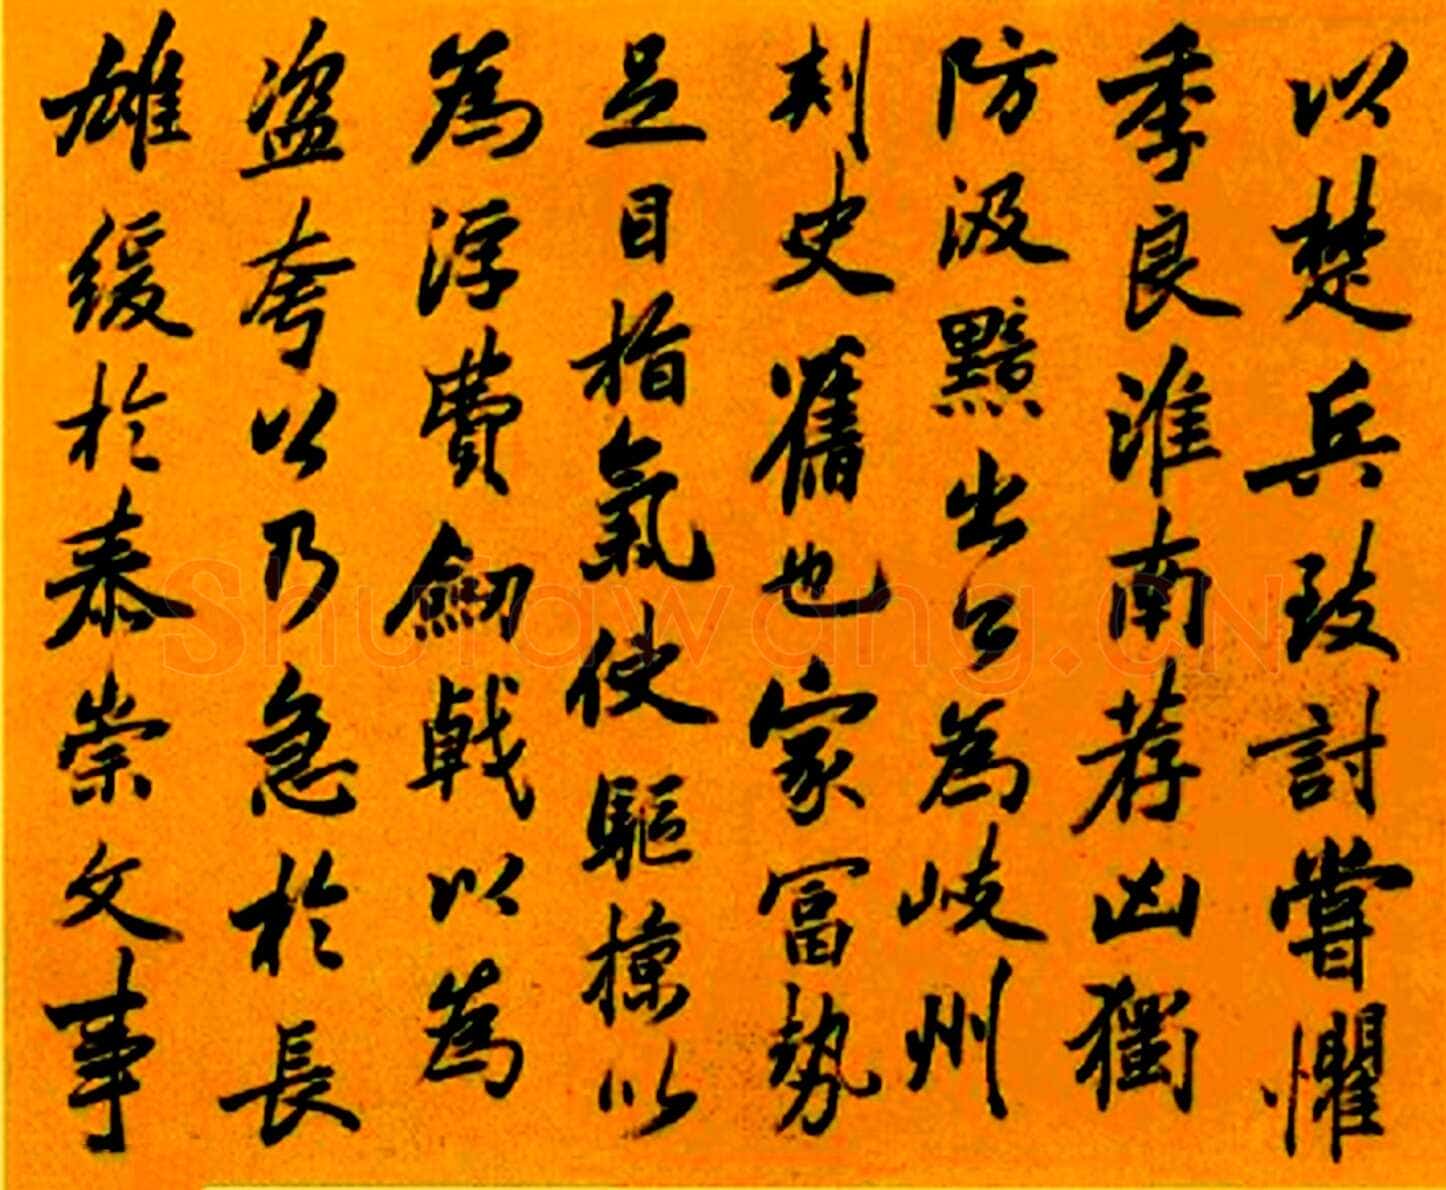 以楚兵致討嘗懼
季良淮南荐凶獨
防汲黯出公為岐州
刺史舊也家富勢
足目指氣使驅掠以
為浮費劍戟以為
盜夸公乃急於長
雄緩於泰崇文事
Shufawang.CN